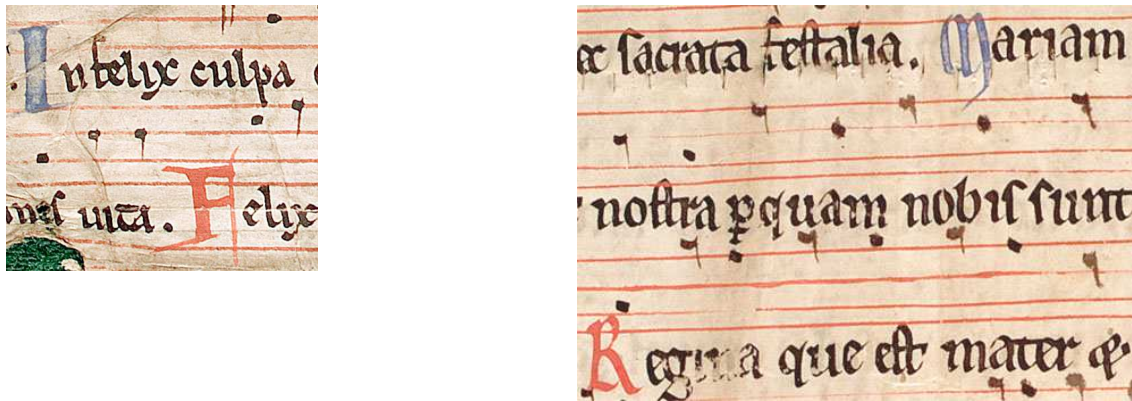 Infelix culpa
ones uita. Felix
ex sacrata festalia. Mariam
nostra ꝑ quam nobis sunt
Regina que est mater